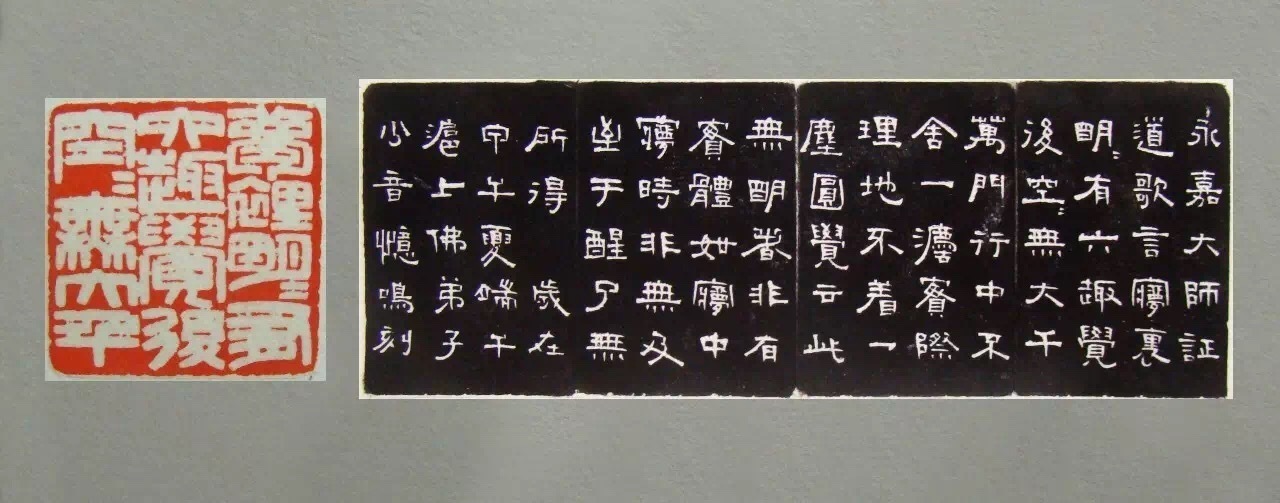 㝱裡明〻有
六趣覺後
空〻無大千
永嘉大師証
道歌言㝱裏
明〻有六趣覺
後空〻無大千
萬門行中不
舍一灋實際
理地不着一
塵圓覺云此
無明者非有
實體如㝱中
㝱時非無及
至于醒了無
所得 歲在
甲午夏端午
滬上佛弟子
少音憶鳴刻